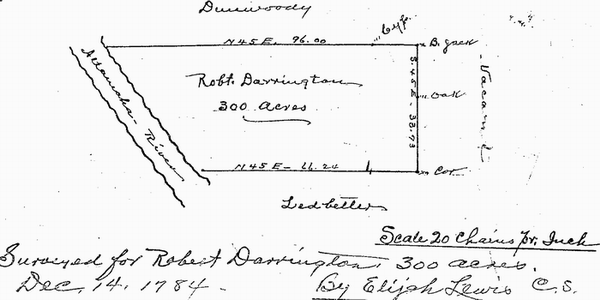 Dunwoody
Cyp.
N 45 E. 96.00
B. Jack
Altamaha River
Robt. Darrington
300 Acres
S 45 E - 38.73
Oak
Vacant
N 45 E - 66.24
Cor.
Ledbetter
Scale 20 Chains pr. Inch
Surveyed for Robert Darrington, 300 acres.
Dec. 14, 1784 - By Elijah Lewis C.S.